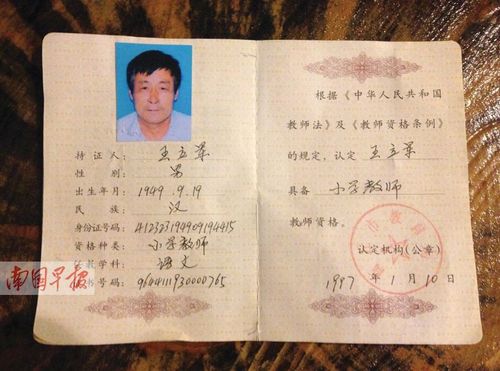 持证人：王立军
性别：男
出生年月：1949.9.19
民族：汉
身份证号码：412323194909194415
资格种类：小学教师
任教学科：语文
证书号码：9644111930000765
南国早报
根据《中华人民共和国
教师法》及《教师资格条例》
的规定，认定 王立军
具备 小学教师
教师资格。
认定机构(公章)
1997年1月10日